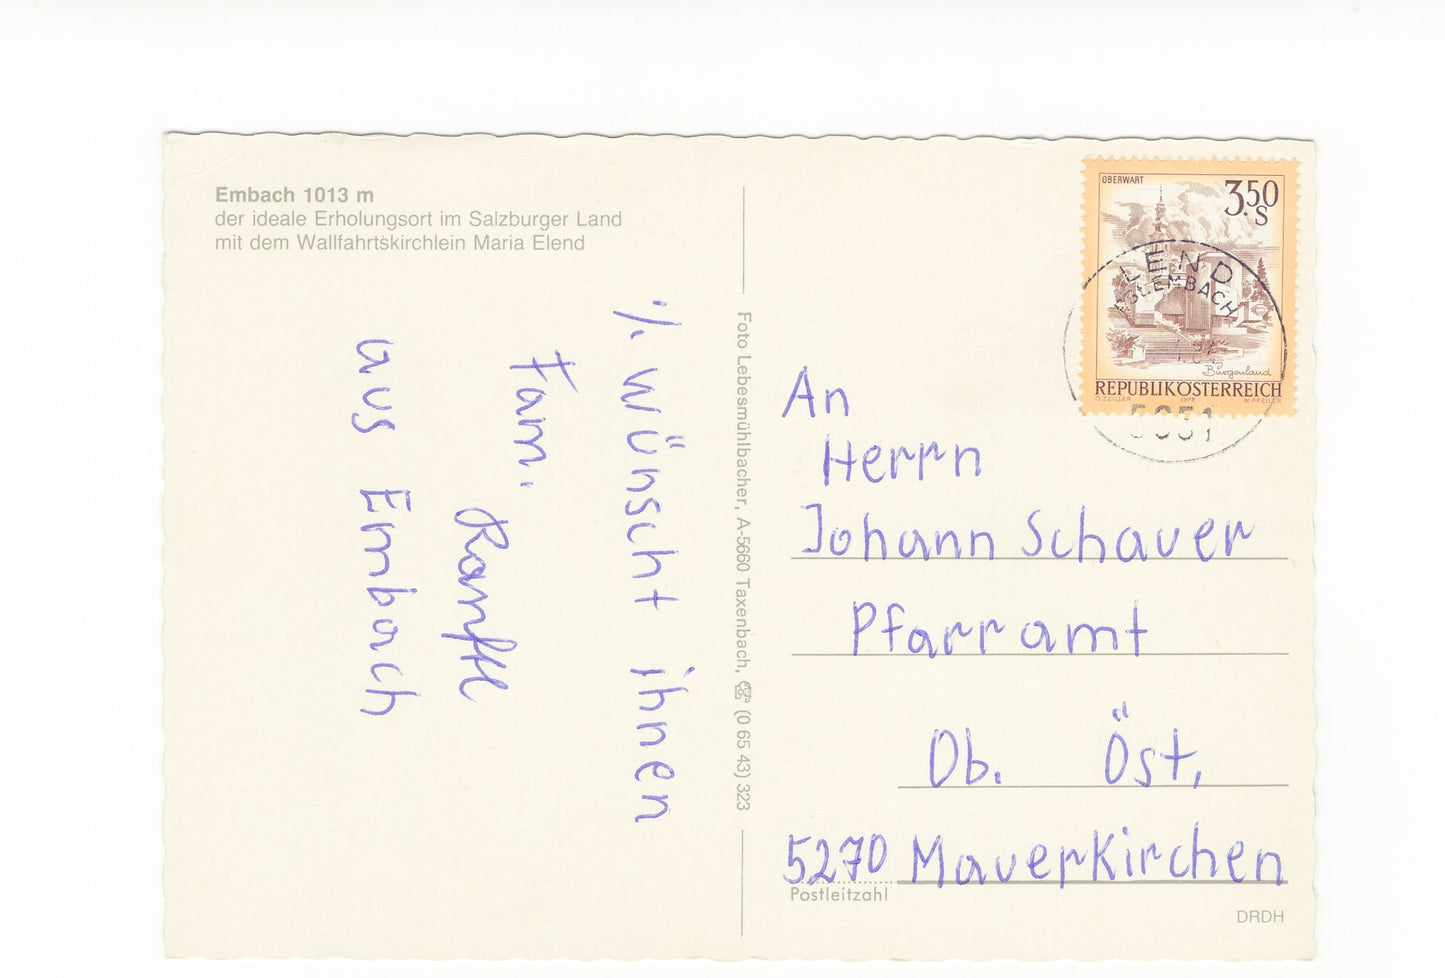 Embach 1013 m
der ideale Erholungsort im Salzburger Land
mit dem Wallfahrtskirchlein Maria Elend
·/. wünscht ihnen
Fam. Ranftl
aus Embach
Foto Lebesmühlbacher, A-5660 Taxenbach, ☎ (0 65 43) 323
OBERWART
3.50
S
Burgenland
REPUBLIK ÖSTERREICH
O. ZEILLER 1976 W. PFEILER
LEND
EMBACH
5651
An
Herrn
Johann Schauer
Pfarramt
Ob. Öst.
5270 Mauerkirchen
Postleitzahl
DRDH